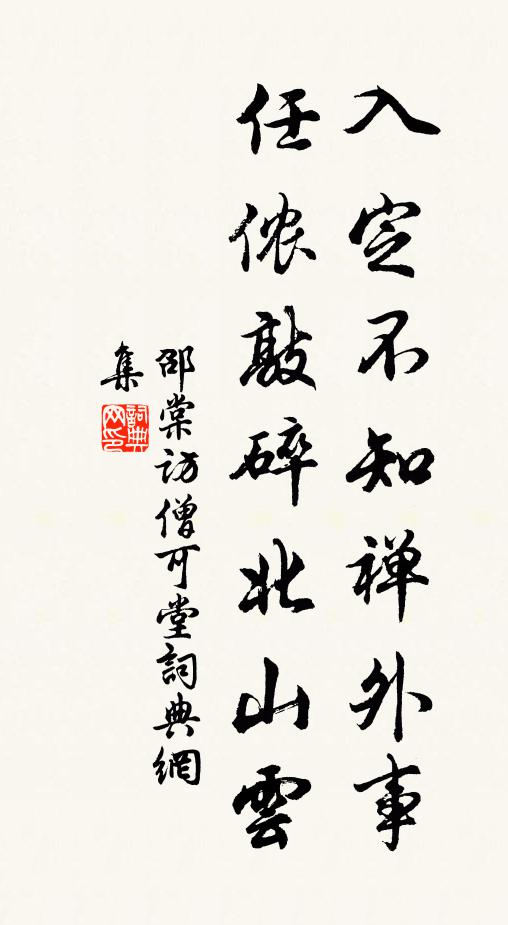 入定不知禅外事
任侬敲碎北山雲
邵棠访僧可堂詞典網
集
詞典
网印